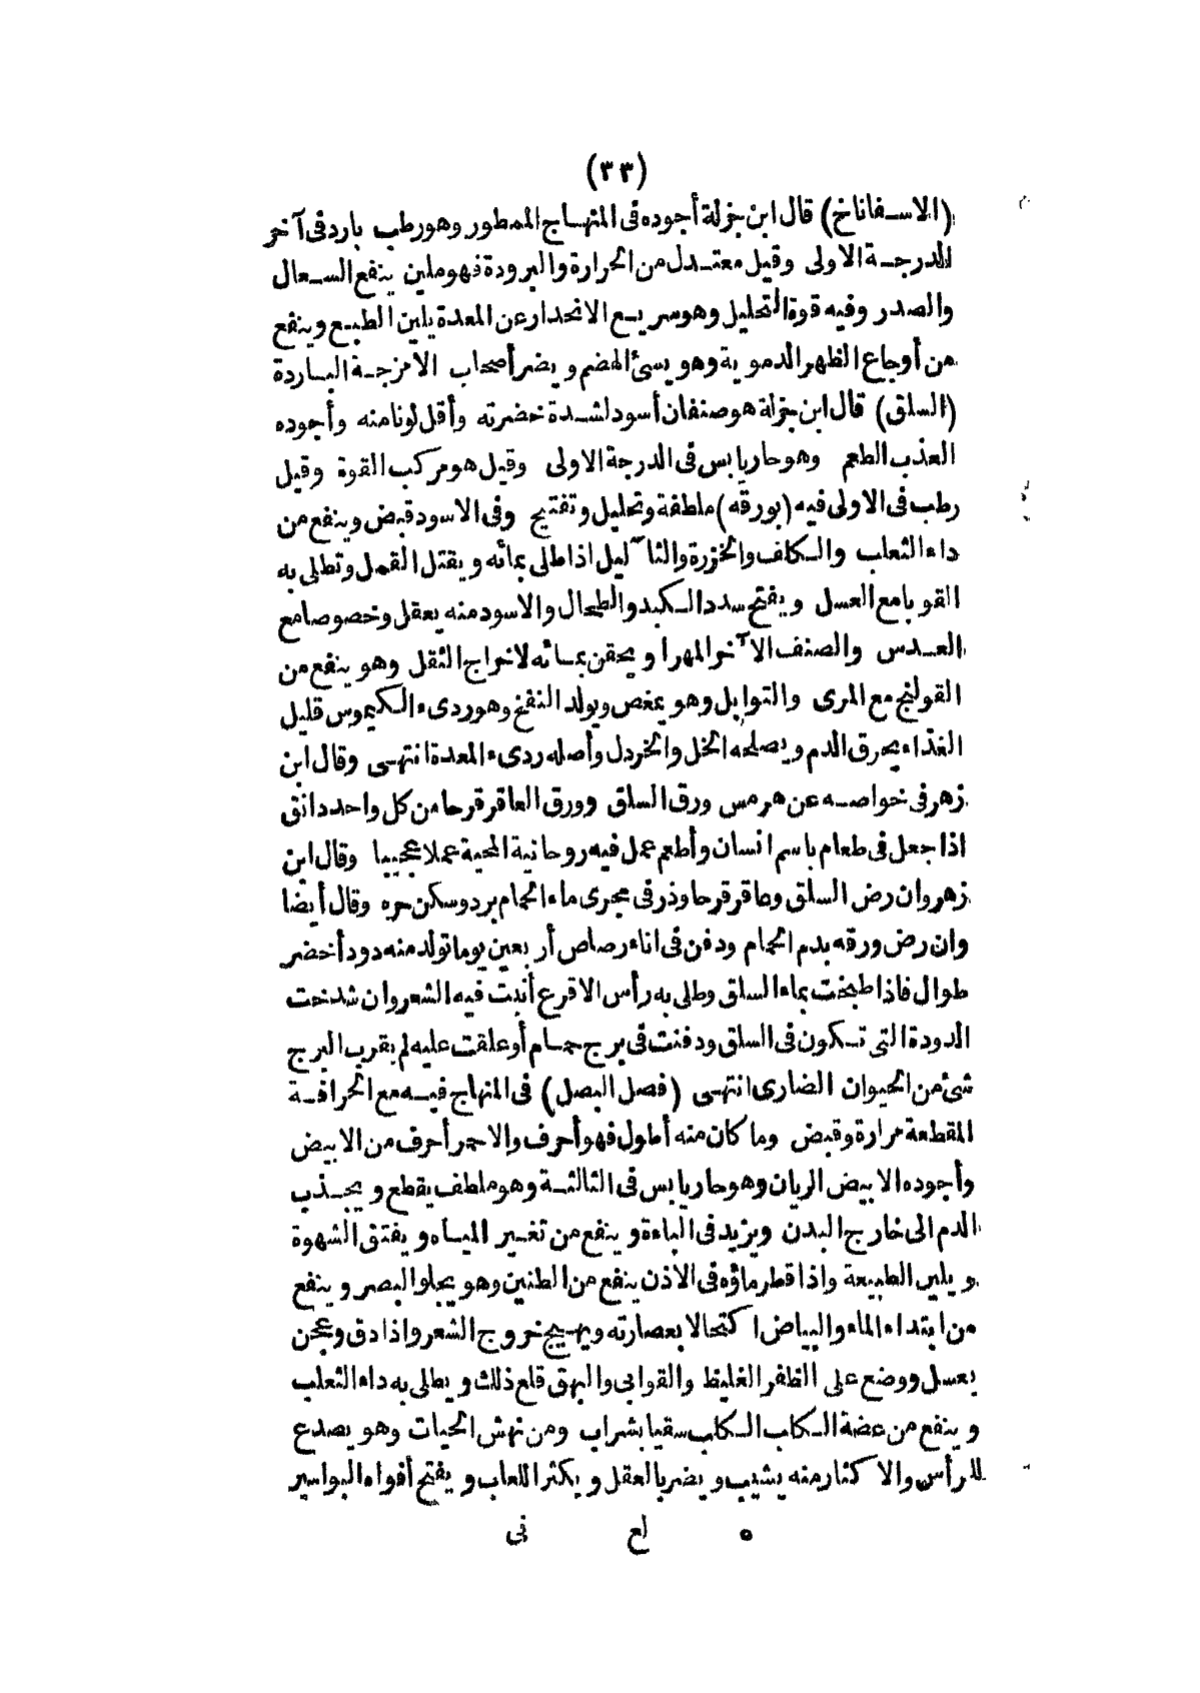 (٣٣)
(الاسفاناخ) قال ابن جزلة أجوده فى المنهاج الممطور وهو رطب بارد فى آخر
الدرجة الاولى وقيل معتدل من الحرارة والبرودة فهو ملين ينفع السعال
والصدر وفيه قوة التحليل وهو سريع الانحدار عن المعدة يلين الطبع وينفع
من أوجاع الظهر الدموية وهو يسئ الهضم ويضر أصحاب الامزجة الباردة
(السلق) قال ابن جزلة هو صنفان أسود لشدة خضرته وأقل لونا منه وأجوده
العذب الطعم وهو حار يابس فى الدرجة الاولى وقيل هو مركب القوة وقيل
رطب فى الاولى فيه (بورقه) ملطفة وتحليل وتفتيح وفى الاسود قبض وينفع من
داء الثعلب والكلف والخزرة والثآليل اذا طلى بمائه ويقتل القمل وتطلى به
القوبا مع العسل ويفتح سدد الكبد والطحال والاسود منه يعقل وخصوصا مع
العدس والصنف الآخر المهرا ويحقن بمائه لاخراج الثقل وهو ينفع من
القولنج مع المرى والتوابل وهو يمغص ويولد النفخ وهو ردىء الكيموس قليل
الغذاء يحرق الدم ويصلحه الخل والخردل وأصله ردىء المعدة انتهى وقال ابن
زهر فى خواصه عن هرمس ورق السلق وورق العاقر قرحا من كل واحد دانق
اذا جعل فى طعام باسم انسان وأطعم عمل فيه روحانية المحبة عملا عجيبا وقال ابن
زهر وان رض السلق وعاقر قرحا وذر فى مجرى ماء الحمام برد وسكن حره وقال أيضا
وان رض ورقه بدم الحمام ودفن فى اناء رصاص أربعين يوما تولد منه دود أخضر
طوال فاذا طبخت بماء السلق وطلى به رأس الاقرع أنبت فيه الشعر وان شدخت
الدودة التى تكون فى السلق ودفنت فى برج حمام أو علقت عليه لم يقرب البرج
شئ من الحيوان الضارى انتهى (فصل البصل) فى المنهاج فيه مع الحرافة
المقطعة مرارة وقبض وما كان منه أطول فهو أحرف والاحمر أحرف من الابيض
وأجوده الابيض الريان وهو حار يابس فى الثالثة وهو ملطف يقطع ويجذب
الدم الى خارج البدن ويزيد فى الباءة وينفع من تغير المياه ويفتق الشهوة
ويلين الطبيعة واذا قطر ماؤه فى الاذن ينفع من الطنين وهو يجلو البصر وينفع
من ابتداء الماء والبياض اكتحالا بعصارته ويهيج خروج الشعر واذا دق وعجن
بعسل ووضع على الظفر الغليظ والقوابى والبهق قلع ذلك ويطلى به داء الثعلب
وينفع من عضة الكلب الكلب سقيا بشراب ومن نهش الحيات وهو يصدع
للرأس والاكثار منه يشيب ويضر بالعقل ويكثر اللعاب ويفتح أفواه البواسير
٥ لع نى